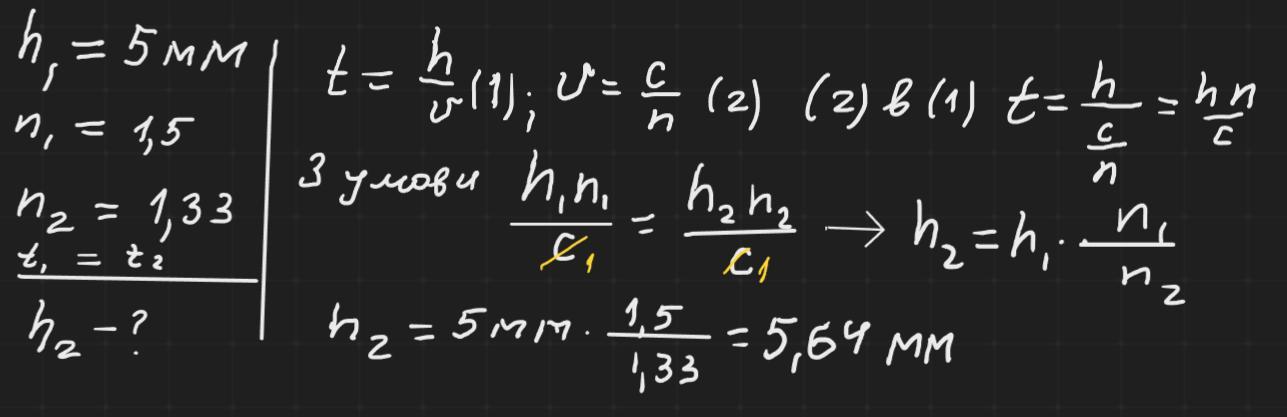 h₁ = 5 мм
n₁ = 1,5
n₂ = 1,33
t₁ = t₂
h₂ - ?
t = h/υ (1); υ = c/n (2) (2) в (1) t = h/(c/n) = hn/c
З умови h₁n₁/c₁ = h₂n₂/c₁ → h₂ = h₁ · n₁/n₂
h₂ = 5 мм · 1,5/1,33 = 5,64 мм